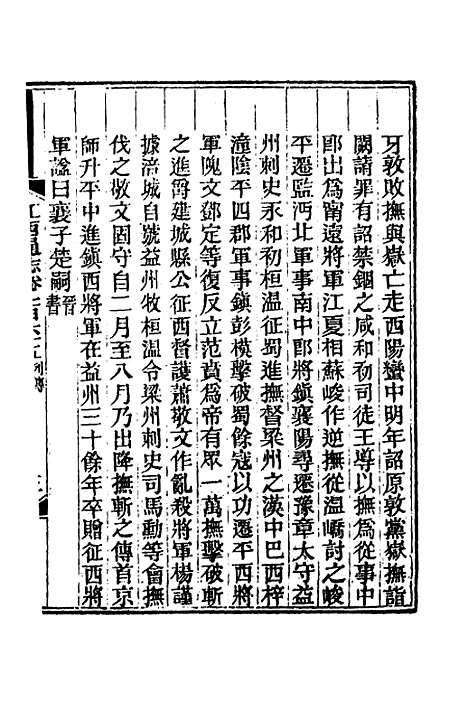 牙敦敗撫與嶽亡走西陽蠻中明年詔原敦黨嶽撫詣
闕請罪有詔禁錮之咸和初司徒王導以撫為從事中
郎出為甯遠將軍江夏相蘇峻作逆撫從溫嶠討之峻
平遷監沔北軍事南中郎將鎮襄陽尋遷豫章太守益
州刺史永和初桓温征蜀進撫督梁州之漢中巴西梓
潼陰平四郡軍事鎮彭模擊破蜀餘寇以功遷平西將
軍隗文鄧定等復反立范賁為帝有眾一萬撫擊破斬
之進爵建城縣公征西督護蕭敬文作亂殺將軍楊謹
據涪城自號益州牧桓温令梁州刺史司馬勳等會撫
伐之敬文固守自二月至八月乃出降撫斬之傳首京
師升平中進鎮西將軍在益州三十餘年卒贈征西將
軍諡曰襄子楚嗣晉書
江西通志卷一百六十五列傳